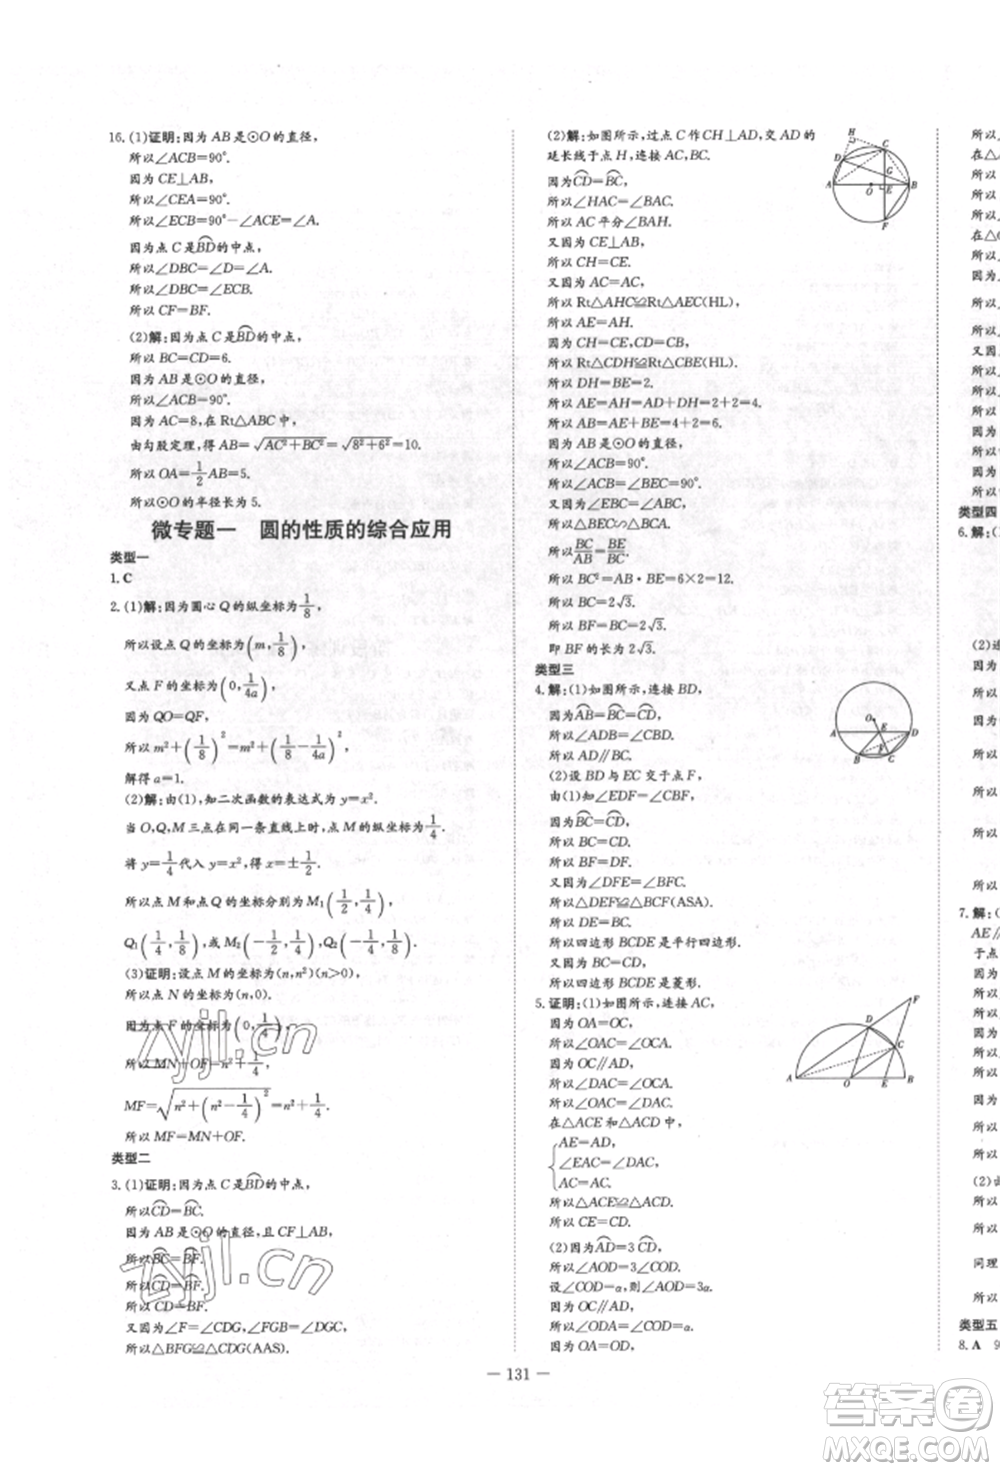 16. (1)证明:因为 AB 是⊙O 的直径,
所以∠ACB=90°.
因为 CE⊥AB,
所以∠CEA=90°.
所以∠ECB=90°-∠ACE=∠A.
因为点 C 是BD的中点,
所以∠DBC=∠D=∠A.
所以∠DBC=∠ECB.
所以 CF=BF.
(2)解:因为点 C 是BD的中点,
所以 BC=CD=6.
因为 AB 是⊙O 的直径,
所以∠ACB=90°.
因为 AC=8,在 Rt△ABC 中,
由勾股定理,得 AB=√AC²+BC²=√8²+6²=10.
所以 OA=1/2AB=5.
所以⊙O 的半径长为 5.
微专题一 圆的性质的综合应用
类型一
1. C
2. (1)解:因为圆心 Q 的纵坐标为1/8,
所以设点 Q 的坐标为(m,1/8),
又点 F 的坐标为(0,1/4a),
因为 QO=QF,
所以 m²+(1/8)²=m²+(1/8-1/4a)²,
解得 a=1.
(2)解:由(1),知二次函数的表达式为 y=x².
当 O,Q,M 三点在同一条直线上时,点 M 的纵坐标为1/4.
将 y=1/4代入 y=x²,得 x=±1/2.
所以点 M 和点 Q 的坐标分别为 M₁(1/2,1/4),
Q₁(1/4,1/8),或 M₂(-1/2,1/4),Q₂(-1/4,1/8).
(3)证明:设点 M 的坐标为(n,n²)(n>0),
所以点 N 的坐标为(n,0).
因为点 F 的坐标为(0,1/4),
所以 MN+OF=n²+1/4,
MF=√n²+(n²-1/4)²=n²+1/4.
所以 MF=MN+OF.
类型二
3. (1)证明:因为点 C 是BD的中点,
所以CD=BC.
因为 AB 是⊙O 的直径,且 CF⊥AB,
所以BC=BF.
所以CD=BF.
所以 CD=BF.
又因为∠F=∠CDG,∠FGB=∠DGC,
所以△BFG≌△CDG(AAS).
(2)解:如图所示,过点 C 作 CH⊥AD,交 AD 的
延长线于点 H,连接 AC,BC.
因为CD=BC,
所以∠HAC=∠BAC.
所以 AC 平分∠BAH.
又因为 CE⊥AB,
所以 CH=CE.
又因为 AC=AC,
所以 Rt△AHC≌Rt△AEC(HL)
所以 AE=AH.
因为 CH=CE,CD=CB,
所以 Rt△CDH≌Rt△CBE(HL).
所以 DH=BE=2.
所以 AE=AH=AD+DH=2+2=4.
所以 AB=AE+BE=4+2=6.
因为 AB 是⊙O 的直径,
所以∠ACB=90°.
所以∠ACB=∠BEC=90°.
又因为∠EBC=∠ABC,
所以△BEC∽△BCA.
所以BC/AB=BE/BC.
所以 BC²=AB·BE=6×2=12.
所以 BC=2√3.
所以 BF=BC=2√3.
即 BF 的长为 2√3.
类型三
4. 解:(1)如图所示,连接 BD,
因为AB=BC=CD,
所以∠ADB=∠CBD.
所以 AD∥BC.
(2)设 BD 与 EC 交于点 F,
由(1)知∠EDF=∠CBF,
因为BC=CD,
所以 BF=DF.
又因为∠DFE=∠BFC,
所以△DEF≌△BCF(ASA).
所以 DE=BC.
所以四边形 BCDE 是平行四边形.
又因为 BC=CD,
所以四边形 BCDE 是菱形.
5. 证明:(1)如图所示,连接 AC,
因为 OA=OC,
所以∠OAC=∠OCA.
因为 OC∥AD,
所以∠DAC=∠OCA.
所以∠OAC=∠DAC.
在△ACE 和△ACD 中,
AE=AD,
∠EAC=∠DAC,
AC=AC,
所以△ACE≌△ACD(SAS).
所以 CE=CD.
(2)因为AD=3 CD,
所以∠AOD=3∠COD.
设∠COD=α,则∠AOD=3α
因为 OC∥AD,
所以∠ODA=∠COD=α.
因为 OA=OD,
— 131 —
类型四
6. 解:(
7. 解:(
AE∥
类型五
8. A 9
zyjl.cn
zyjl.cn
答案圈
MXQE.COM